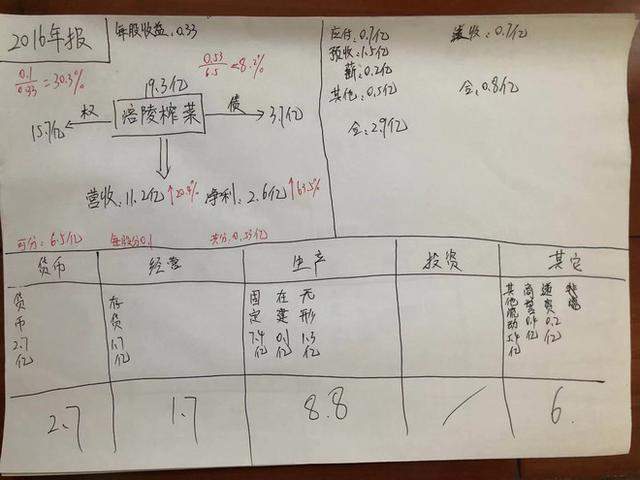 2016年报
每股收益:0.33
0.1/0.33=30.3%
0.53/6.5=8.2%
19.3亿
15.7亿
权
涪陵榨菜
债
3.7亿
营收:11.2亿↑20.4% 净利:2.6亿↑63.5%
可分:6.5亿 每股分0.1 共分:0.53亿
应付:0.7亿
预收:1.5亿
薪:0.2亿
其他:0.5亿
合:2.9亿
递收:0.7亿
合:0.8亿
货币 经营 生产 投资 其它
货币2.7亿
存货1.7亿
固定7.4亿
在建0.1亿
无形1.3亿
其他流动5.4亿
商誉0.4亿
递资0.2亿
2.7 1.7 8.8 / 6